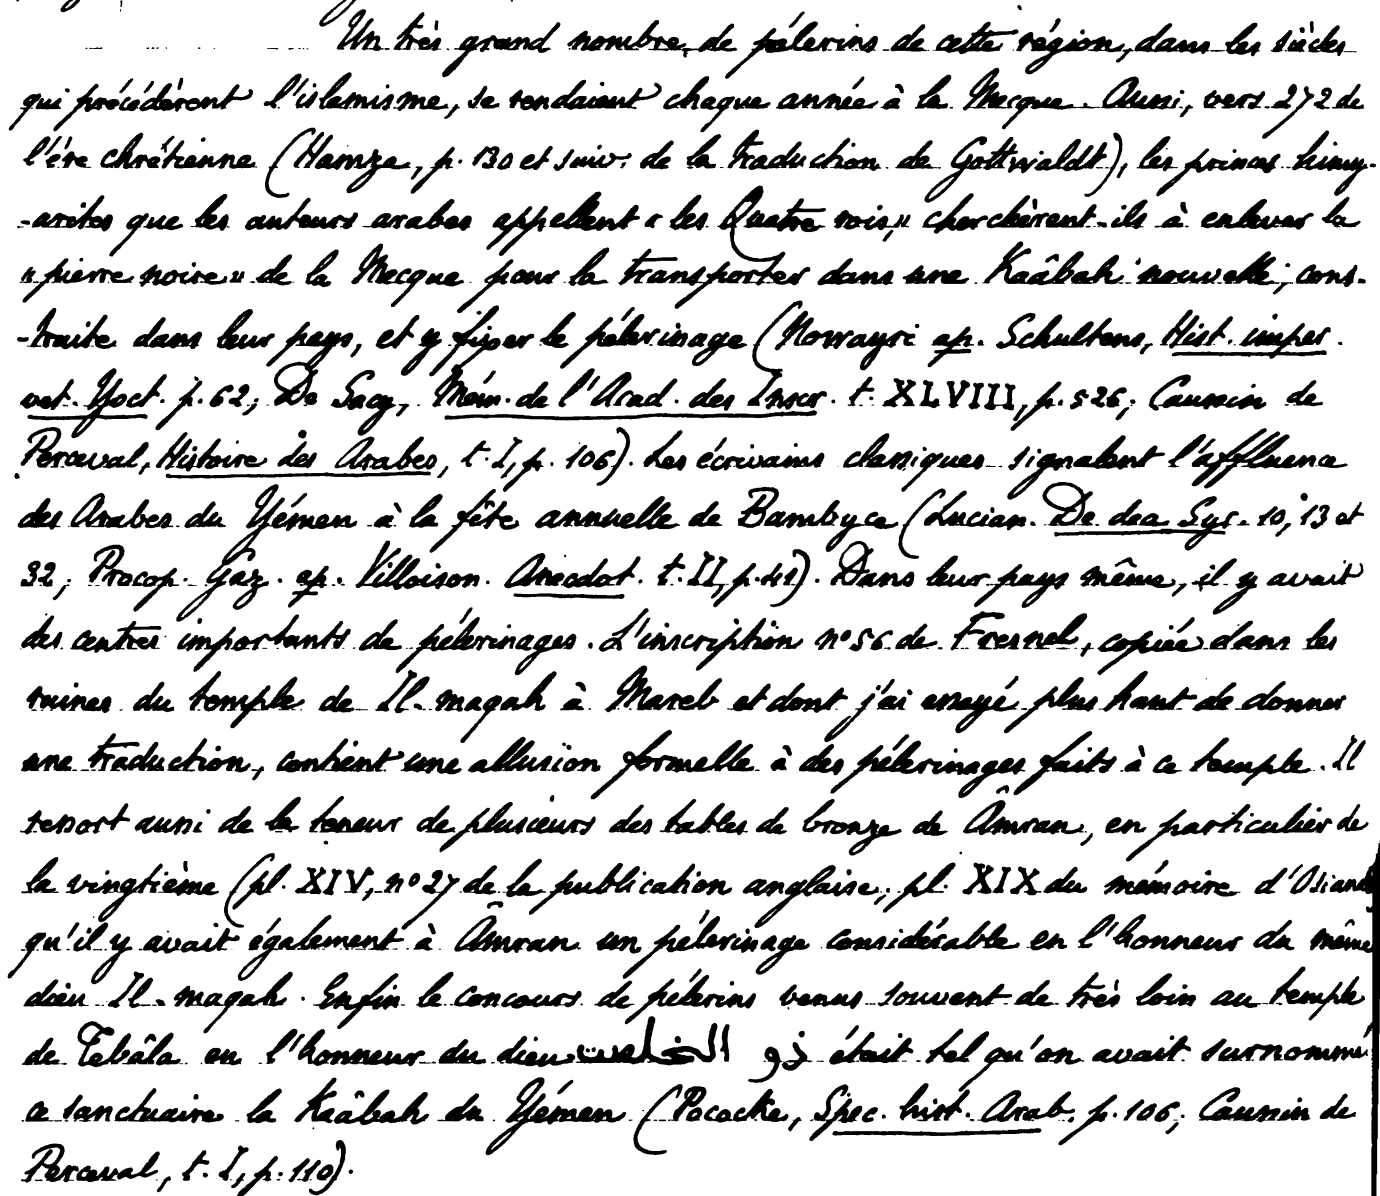 Un très grand nombre de pélerins de cette région, dans les siècles
qui précédèrent l'islamisme, se rendaient chaque année à la Mecque. Aussi, vers 272 de
l'ére chrétienne (Hamza, p. 130 et suiv. de la traduction de Gottwaldt), les princes himy-
-arites que les auteurs arabes appellent « les Quatre rois, » cherchèrent-ils à enlever la
« pierre noire » de la Mecque pour la transporter dans une Kaâbah nouvelle, cons-
-truite dans leur pays, et y fixer le pélerinage (Nowayri ap. Schultens, Hist. imper.
vet. Yoct. p. 62; De Sacy, Mém. de l'Acad. des Inscr. t. XLVIII, p. 526; Caussin de
Perceval, Histoire des Arabes, t. I, p. 106). Les écrivains classiques signalent l'affluence
des Arabes du Yémen à la fête annuelle de Bambyce (Lucian. De dea Syr. 10, 13 et
32; Procop. Gaz. ap. Villoison. Anecdot. t. II, p. 41). Dans leur pays même, il y avait
des centres importants de pélerinages. L'inscription nº 56 de Fresnel, copiée dans les
ruines du temple de Il-maqah à Mareb et dont j'ai essayé plus haut de donner
une traduction, contient une allusion formelle à des pélerinages faits à ce temple. Il
ressort aussi de la teneur de plusieurs des tables de bronze de Âmran, en particulier de
la vingtième (pl. XIV, nº 27 de la publication anglaise; pl. XIX du mémoire d'Osiander
qu'il y avait également à Âmran un pélerinage considérable en l'honneur du même
dieu Il-maqah. Enfin le concours de pélerins venus souvent de très loin au temple
de Tebâla en l'honneur du dieu ذو الخلصت était tel qu'on avait surnommé
ce sanctuaire la Kaâbah du Yémen (Pococke, Spec. hist. Arab. p. 106; Caussin de
Perceval, t. I, p. 110).